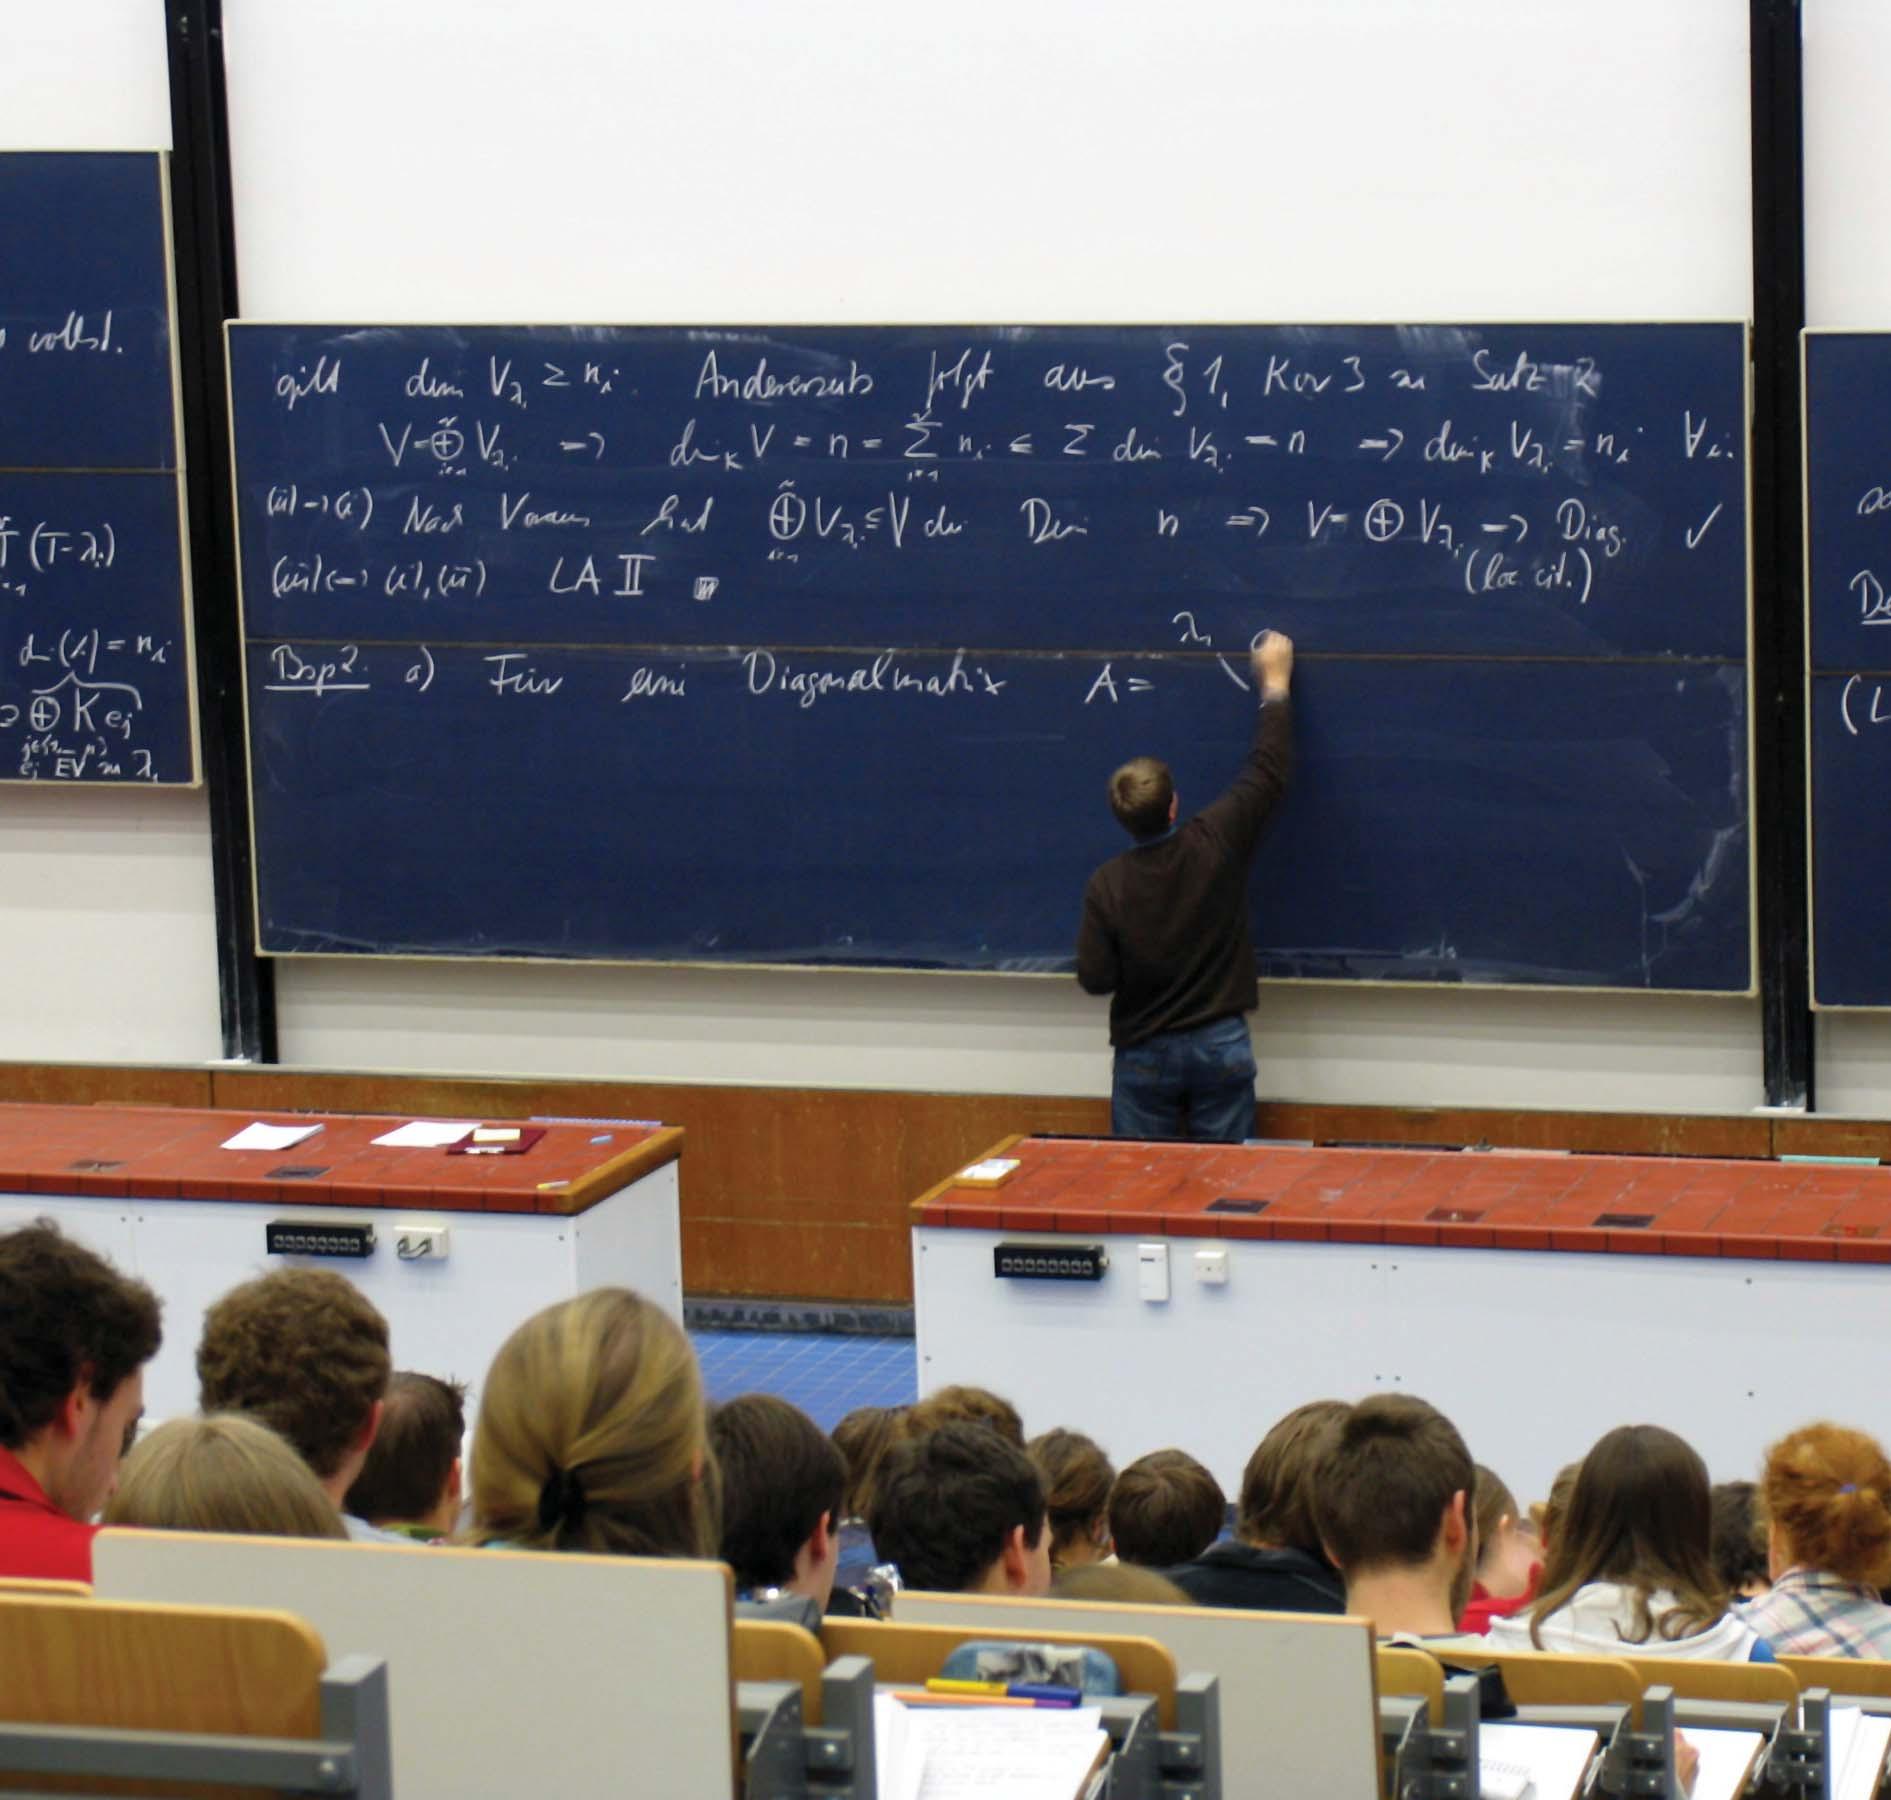 vollst.
(T-λi)
di(λ) = ni
⊕ K ej
ej EV zu λi
gilt dim Vλi ≥ ni. Andererseits folgt aus § 1, Kor 3 zu Satz 2
V = ⊕ Vλi => dimK V = n = Σ ni ≤ Σ dim Vλi = n => dimK Vλi = ni ∀i.
(ii)→(i) Nach Voraus hat ⊕ Vλi ≤ V die Dim n => V = ⊕ Vλi => Diag. ✓
(loc. cit.)
(iii)<=>(i),(ii) LA II
Bsp 2. a) Für eine Diagonalmatrix A = λ1
(L